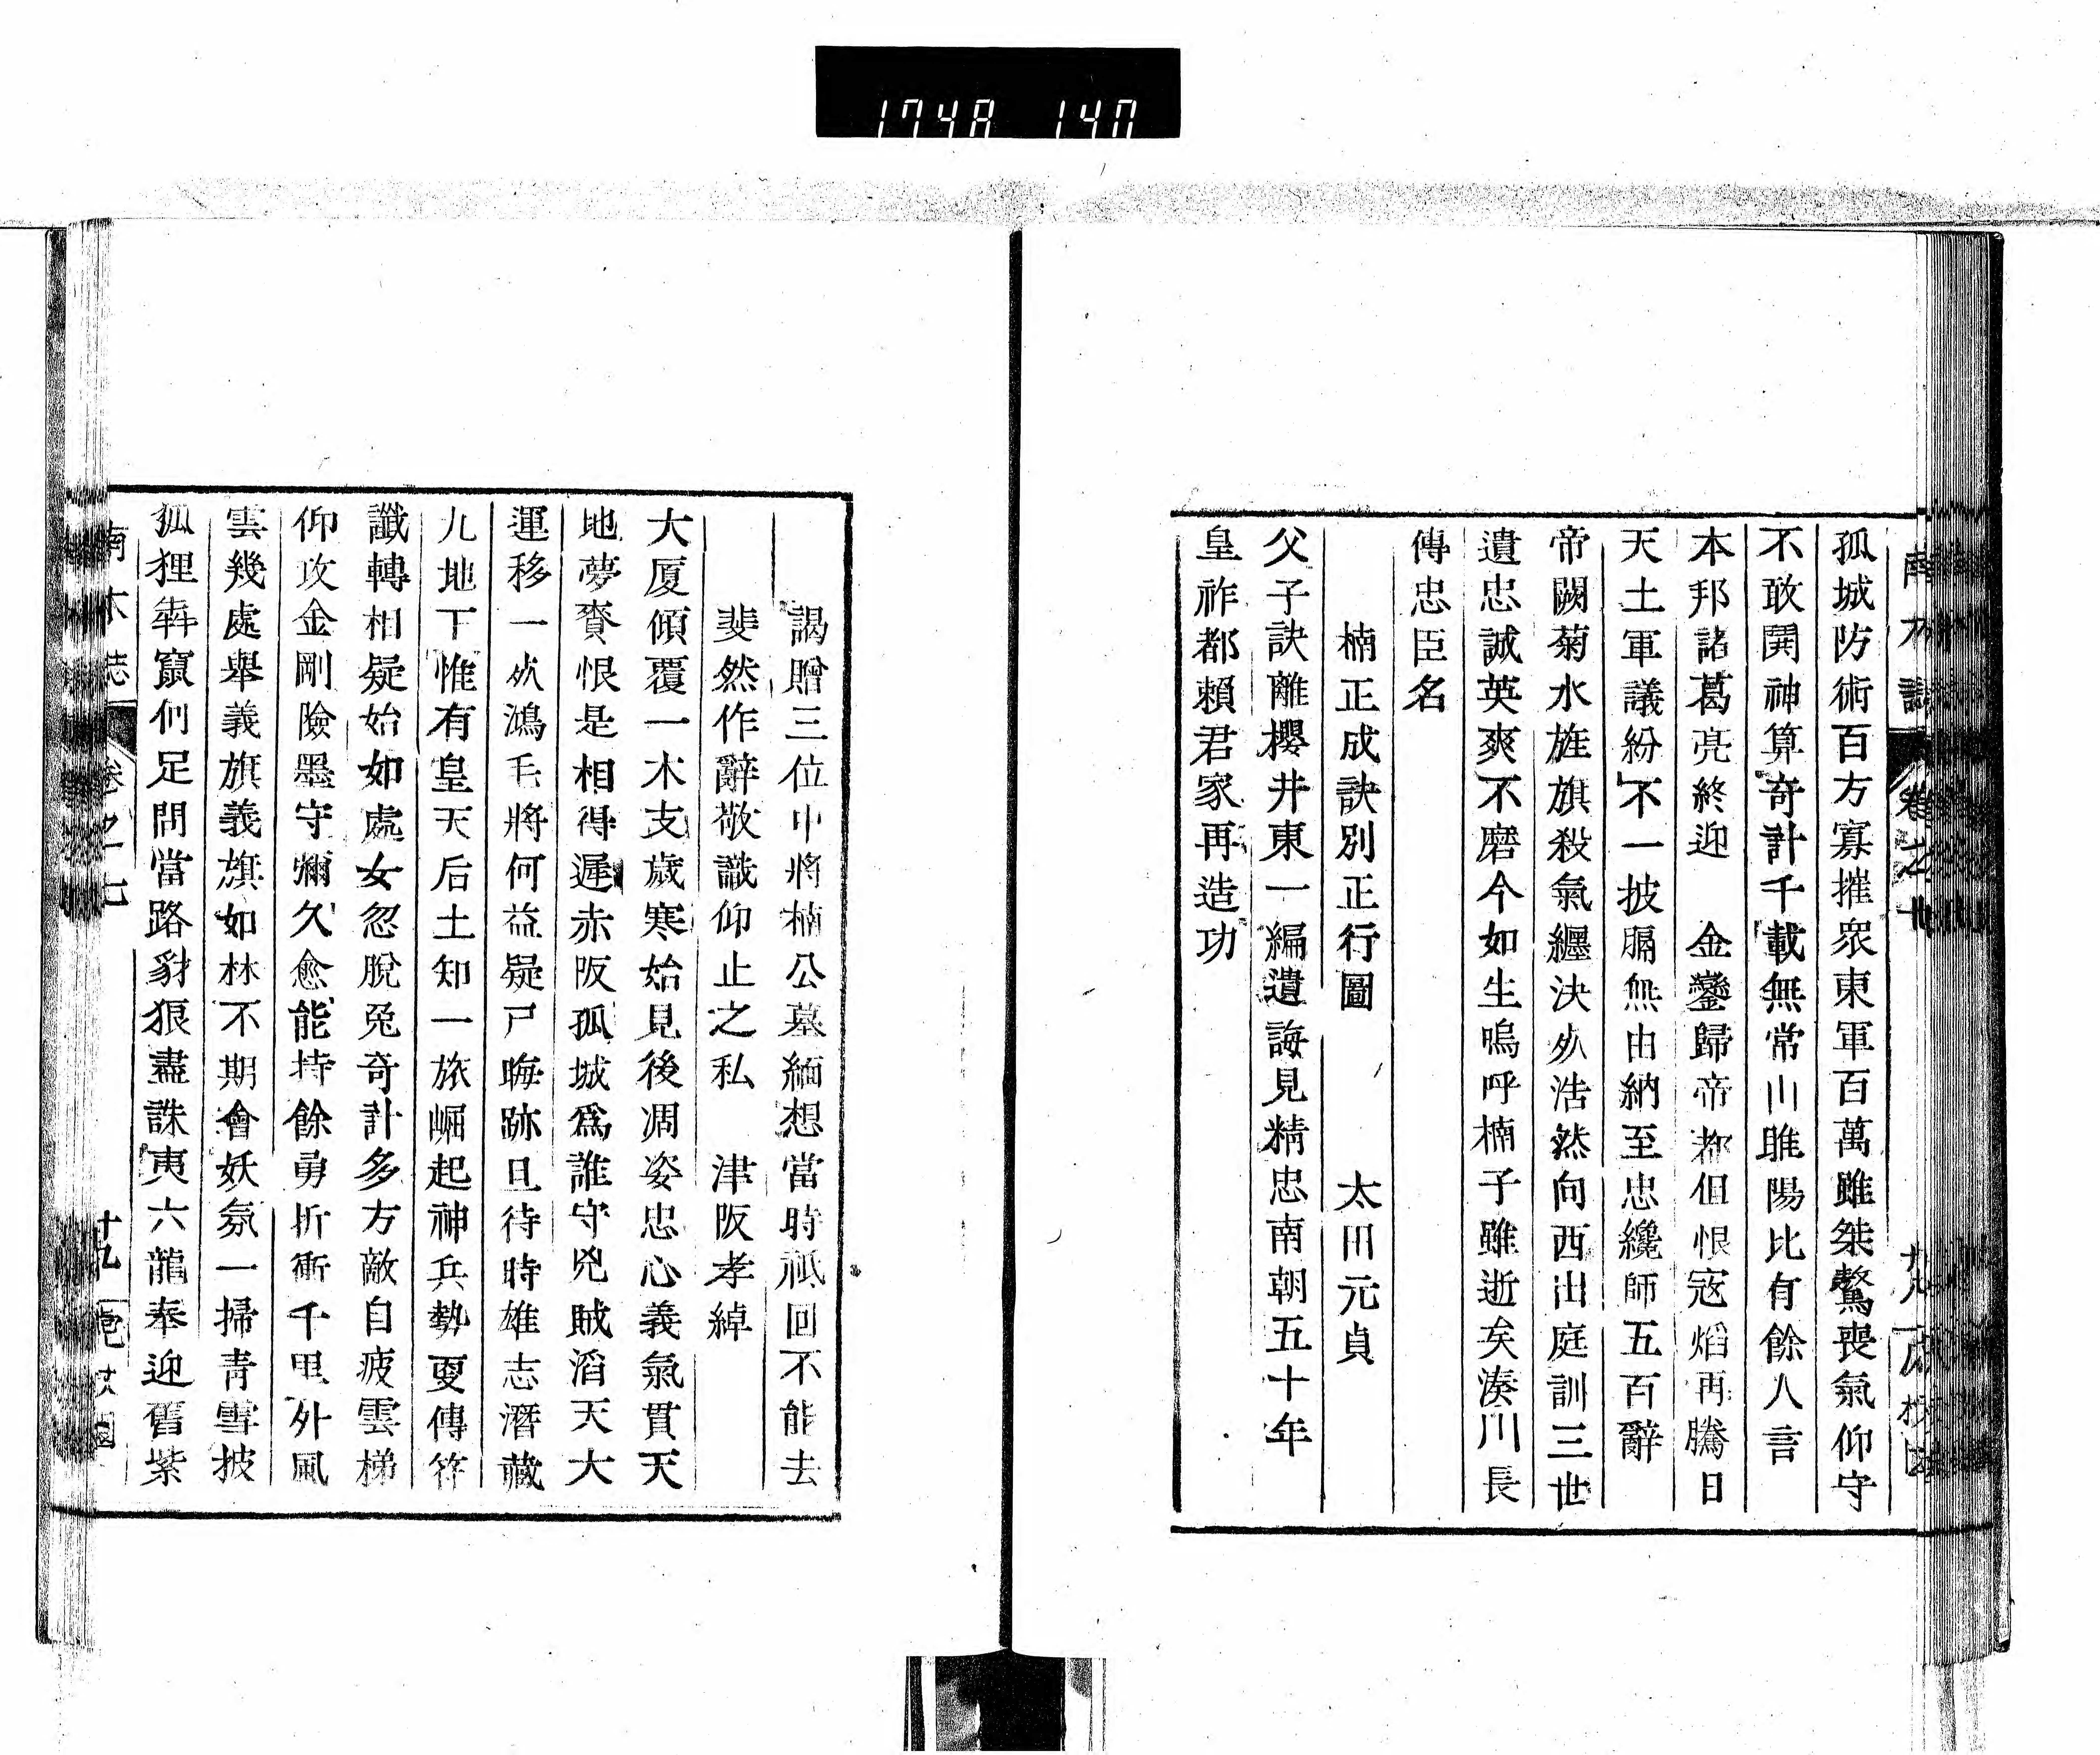 1748 140
孤城防術百方寡摧衆東軍百萬雖桀驁喪氣仰守
不敢開神算奇計千載無常山睢陽比有餘人言
本邦諸葛亮終迎　金鑾歸帝都但恨寇焰再騰日
天土軍議紛不一披膈無由納至忠纔師五百辭
帝闕菊水旌旗殺氣纏決死浩然向西出庭訓三世
遺忠誠英爽不磨今如生嗚呼楠子雖逝矣湊川長
傳忠臣名
楠正成訣別正行圖　太田元貞
父子訣離櫻井東一編遺誨見精忠南朝五十年
皇祚都賴君家再造功
謁贈三位中將楠公墓緬想當時祗回不能去
斐然作辭敬識仰止之私　津阪孝綽
大厦傾覆一木支歲寒始見後凋姿忠心義氣貫天
地夢賚恨是相得遲赤阪孤城爲誰守兇賊滔天大
運移一死鴻毛將何益疑尸晦跡且待時雄志潛藏
九地下惟有皇天后土知一旅崛起神兵勢更傳符
讖轉相疑始如處女忽脫兔奇計多方敵自疲雲梯
仰攻金剛險墨守彌久愈能持餘勇折衝千里外風
雲幾處舉義旗義旗如林不期會妖氛一掃青雪披
狐狸犇竄何足問當路豺狼盡誅夷六龍奉迎舊紫
南木誌　卷之七　十九